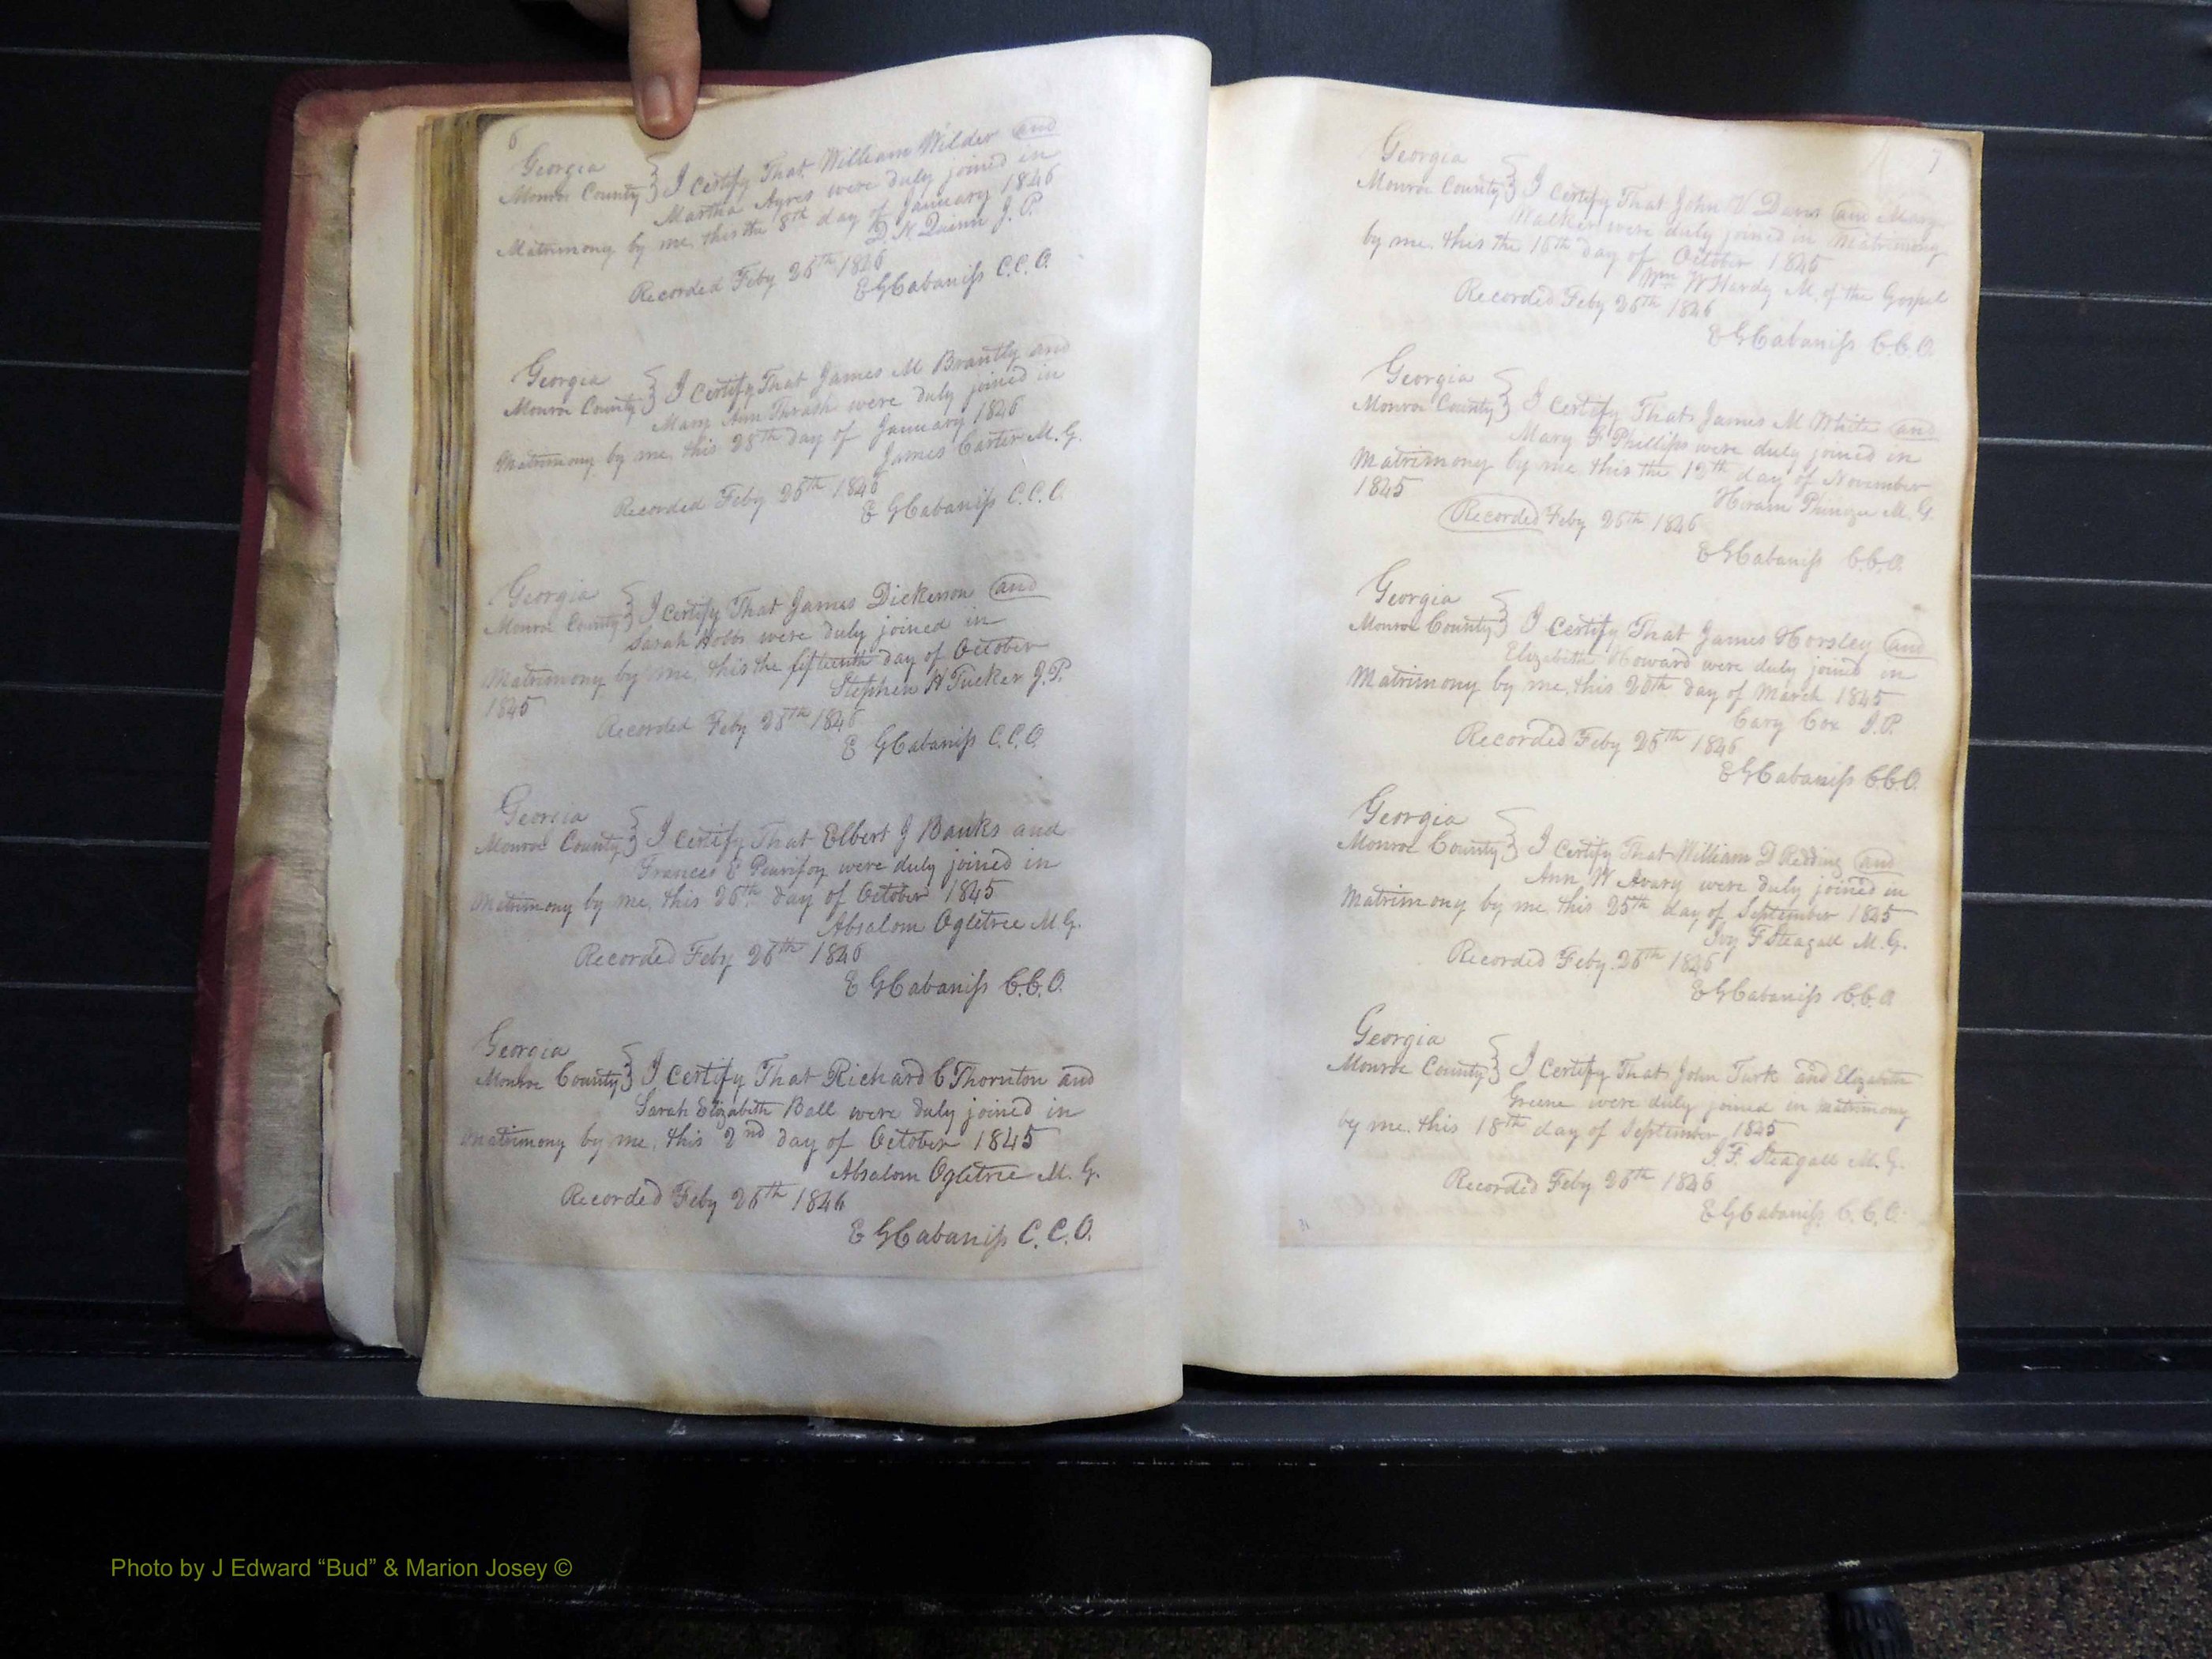 6
Georgia
Monroe County } I Certify That William Wilder and
Martha Ayres were duly joined in
Matrimony by me, this the 8th day of January 1846
D N Quinn J. P.
Recorded Feby 26th 1846
E G Cabaniss C.C.O.
Georgia
Monroe County } I Certify That James M Brantly and
Mary Ann Thrash were duly joined in
Matrimony by me, this 28th day of January 1846
James Carter M. G.
Recorded Feby 26th 1846
E G Cabaniss C.C.O.
Georgia
Monroe County } I Certify That James Dickenson and
Sarah Hobbs were duly joined in
Matrimony by me, this the fifteenth day of October
1845
Stephen H Tucker J.P.
Recorded Feby 25th 1846
E G Cabaniss C.C.O.
Georgia
Monroe County } I Certify That Elbert J Banks and
Frances E Peurifoy were duly joined in
Matrimony by me, this 26th day of October 1845
Absalom Ogletree M. G.
Recorded Feby 26th 1846
E G Cabaniss C.C.O.
Georgia
Monroe County } I Certify That Richard C Thornton and
Sarah Elizabeth Ball were duly joined in
matrimony by me, this 2nd day of October 1845
Absalom Ogletree M. G.
Recorded Feby 26th 1846
E G Cabaniss C.C.O.
7
Georgia
Monroe County } I Certify That John V Davis and Mary
Walker were duly joined in Matrimony
by me, this the 16th day of October 1845
Wm W Hardy M. of the Gospel
Recorded Feby 26th 1846
E G Cabaniss C.C.O.
Georgia
Monroe County } I Certify That James M White and
Mary F Phillips were duly joined in
Matrimony by me this the 12th day of November
1845
Hiram Phinizee M. G.
Recorded Feby 26th 1846
E G Cabaniss C.C.O.
Georgia
Monroe County } I Certify That James Horsley and
Elizabeth Howard were duly joined in
Matrimony by me, this 20th day of March 1845
Cary Cox J.P.
Recorded Feby 26th 1846
E G Cabaniss C.C.O.
Georgia
Monroe County } I Certify That William D Redding and
Ann W Avary were duly joined in
Matrimony by me this 25th day of September 1845
Ivy F Steagall M. G.
Recorded Feby 26th 1846
E G Cabaniss C.C.O.
Georgia
Monroe County } I Certify That John Turk and Elizabeth
Greene were duly joined in matrimony
by me. this 18th day of September 1845
I. F. Steagall M. G.
Recorded Feby 26th 1846
E G Cabaniss C.C.O.
Photo by J Edward “Bud” & Marion Josey ©